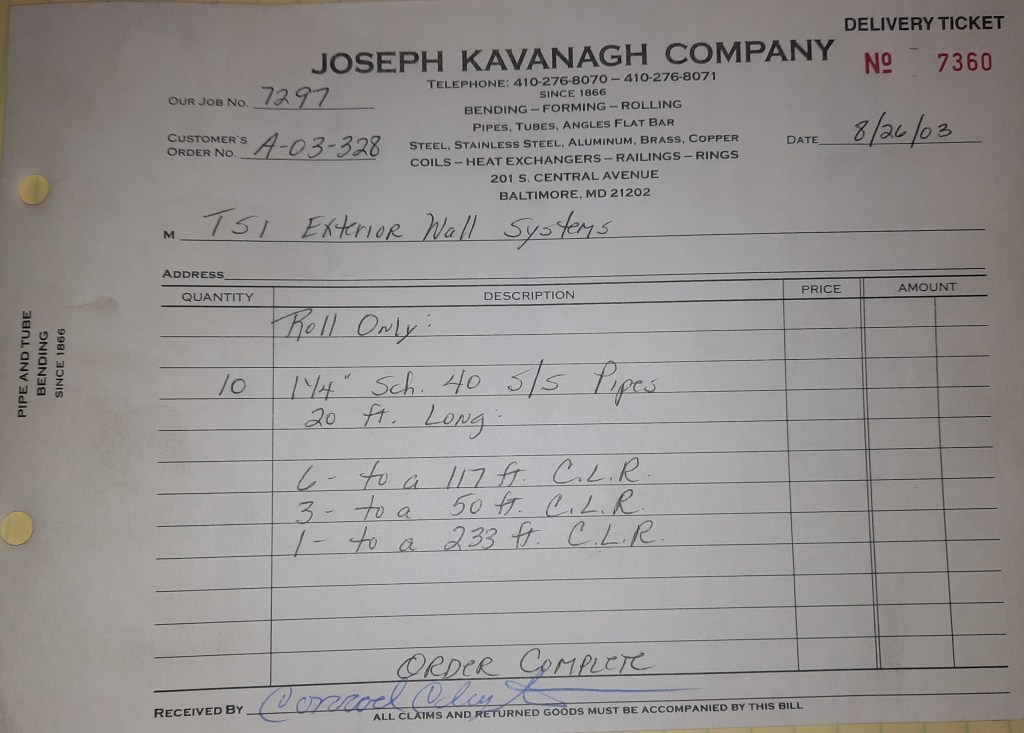 DELIVERY TICKET
JOSEPH KAVANAGH COMPANY
Nº 7360
TELEPHONE: 410-276-8070 – 410-276-8071
SINCE 1866
OUR JOB NO. 7297
BENDING – FORMING – ROLLING
PIPES, TUBES, ANGLES FLAT BAR
CUSTOMER'S ORDER NO. A-03-328
STEEL, STAINLESS STEEL, ALUMINUM, BRASS, COPPER
DATE 8/26/03
COILS – HEAT EXCHANGERS – RAILINGS – RINGS
201 S. CENTRAL AVENUE
BALTIMORE, MD 21202
M TSI Exterior Wall Systems
ADDRESS
QUANTITY DESCRIPTION PRICE AMOUNT
Roll Only:
10 1¼" Sch. 40 S/S Pipes
20 ft. Long:
6 - to a 117 ft. C.L.R.
3 - to a 50 ft. C.L.R.
1 - to a 233 ft. C.L.R.
ORDER COMPLETE
RECEIVED BY Conrad
ALL CLAIMS AND RETURNED GOODS MUST BE ACCOMPANIED BY THIS BILL
PIPE AND TUBE
BENDING
SINCE 1866